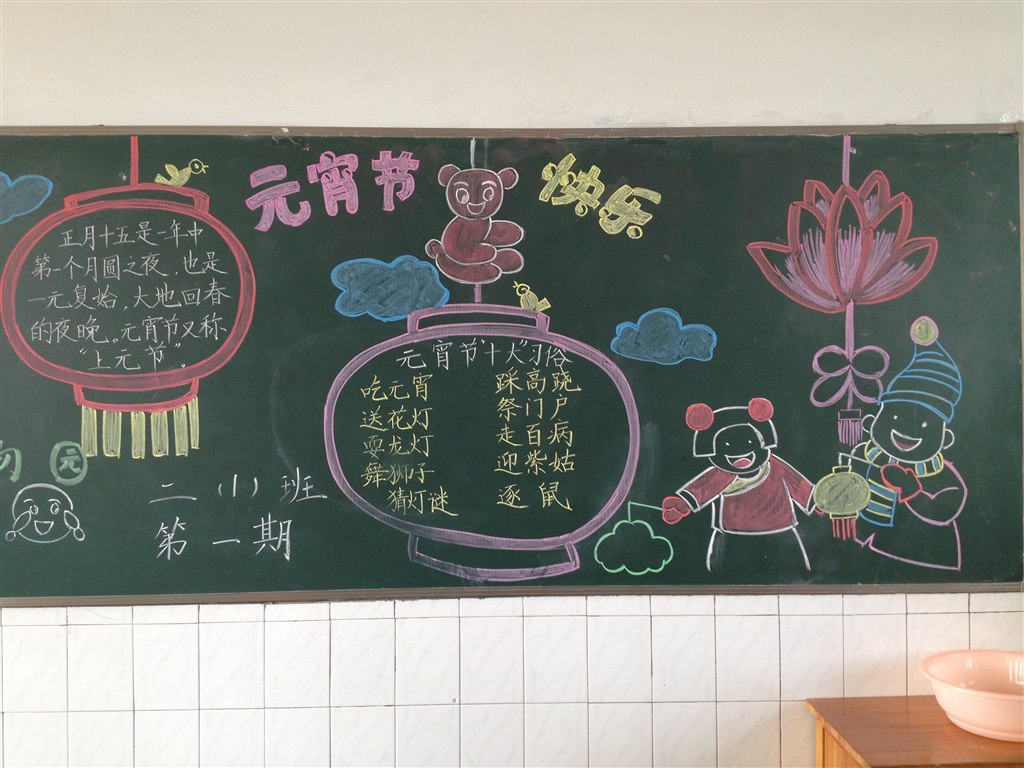 元宵节 快乐
正月十五是一年中
第一个月圆之夜，也是
一元复始，大地回春
的夜晚。元宵节又称
“上元节”。
元宵节"十大"习俗
吃元宵
送花灯
耍龙灯
舞狮子
猜灯谜
踩高跷
祭门户
走百病
迎紫姑
逐鼠
园
二（1）班
第一期